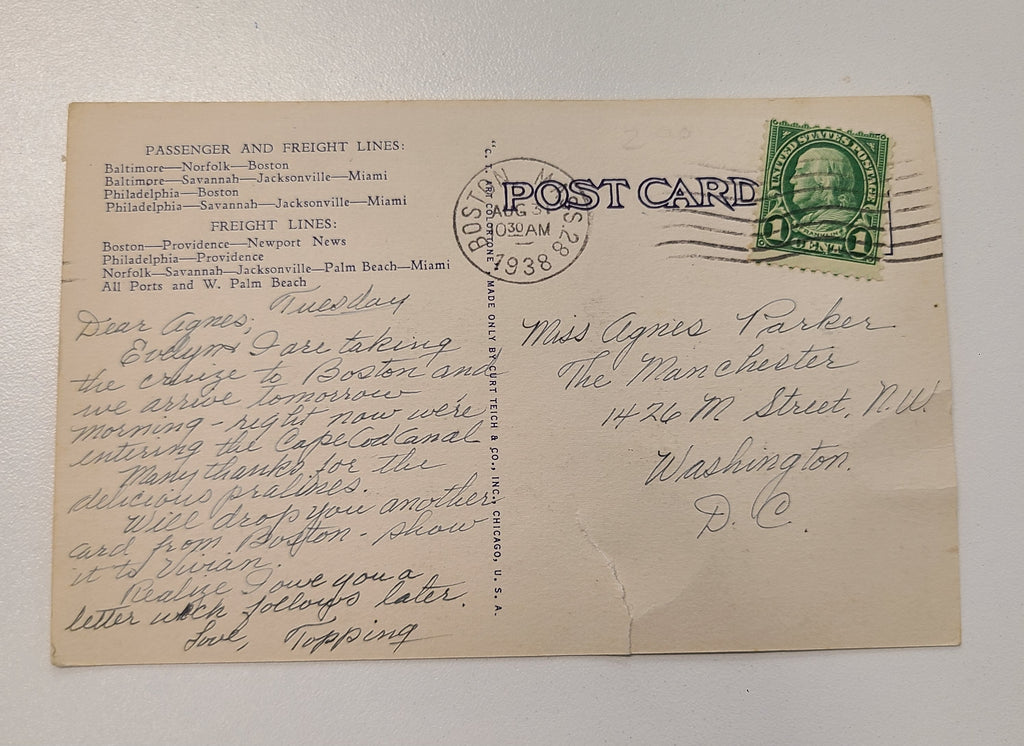 PASSENGER AND FREIGHT LINES:
Baltimore—Norfolk—Boston
Baltimore—Savannah—Jacksonville—Miami
Philadelphia—Boston
Philadelphia—Savannah—Jacksonville—Miami
FREIGHT LINES:
Boston—Providence—Newport News
Philadelphia—Providence
Norfolk—Savannah—Jacksonville—Palm Beach—Miami
All Ports and W. Palm Beach
Tuesday
Dear Agnes,
Evelyn & I are taking
the cruize to Boston and
we arrive tomorrow
morning - right now we're
entering the Cape Cod Canal
Many thanks for the
delicious pralines.
Will drop you another
card from Boston - show
it to Vivian.
Realize I owe you a
letter wch follows later.
Love, Topping
"C. T. ART COLORTONE" MADE ONLY BY CURT TEICH & CO., INC., CHICAGO, U. S. A.
POST CARD
BOSTON MASS. 28
AUG 31
1030 AM
1938
UNITED STATES POSTAGE
FRANKLIN
1 CENT 1
Miss Agnes Parker
The Manchester
1426 M Street, N.W.
Washington.
D. C.